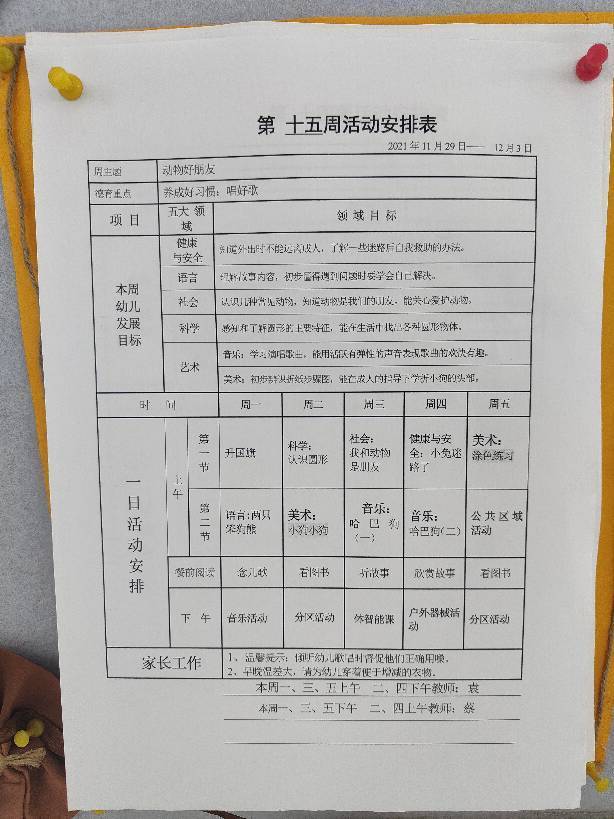 第 十五周活动安排表
2021年11月29日—— 12月3日
周主题 动物好朋友
德育重点 养成好习惯：唱好歌
项 目 五大 领域 领 域 目 标
本周幼儿发展目标
健康与安全 知道外出时不能远离成人，了解一些迷路后自我救助的办法。
语言 理解故事内容，初步懂得遇到问题时要学会自己解决。
社会 认识几种常见动物，知道动物是我们的朋友，能关心爱护动物。
科学 感知和了解圆形的主要特征，能在生活中找出各种圆形物体。
艺术 音乐：学习演唱歌曲，能用活跃有弹性的声音表现歌曲的欢快有趣。
美术：初步辨识折纸步骤图，能在成人的指导下学折小狗的头部。
时 间 周一 周二 周三 周四 周五
一日活动安排
上午
第一节 升国旗 科学：认识圆形 社会：我和动物是朋友 健康与安全：小兔迷路了 美术：涂色练习
第二节 语言：两只笨狗熊 美术：小狗小狗 音乐：哈 巴 狗（一） 音乐：哈巴狗（二） 公共区域活动
餐前阅读 念儿歌 看图书 听故事 欣赏故事 看图书
下 午 音乐活动 分区活动 体智能课 户外器械活动 分区活动
家长工作
1、温馨提示：倾听幼儿歌唱时督促他们正确用嗓。
2、早晚温差大，请为幼儿穿着便于增减的衣物。
本周一、三、五上午 二、四下午教师：袁
本周一、三、五下午 二、四上午教师：蔡